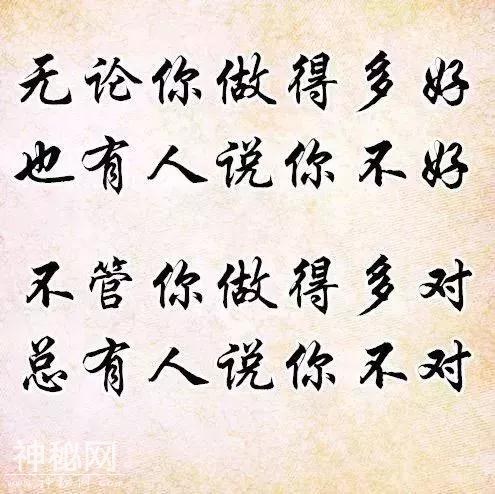 无论你做得多好
也有人说你不好
不管你做得多对
总有人说你不对
神秘网